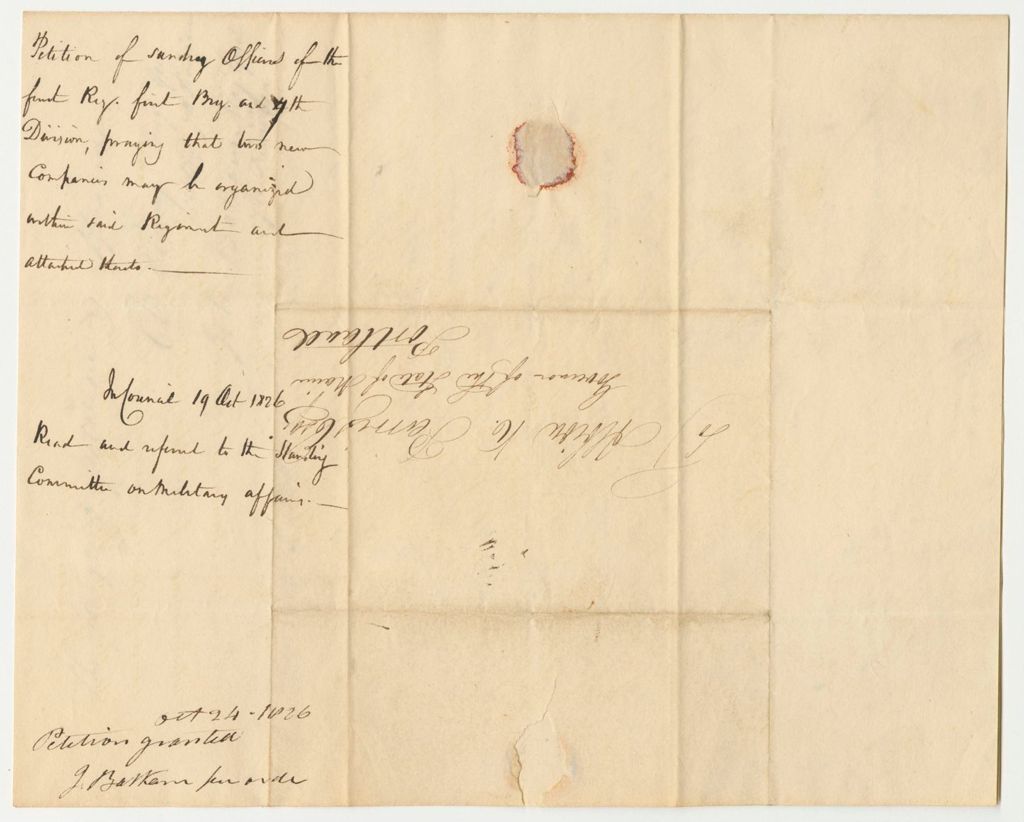 Petition of sundry Officers of the
first Reg. first Brig. and 7th
Division, praying that two new
Companies may be organized
within said Regiment and
attached thereto.
In Council 19 Oct 1826
Read and referred to the Standing
Committee on Military affairs.
Oct 24 - 1826
Petition granted
J. per order
To Albion K. Parris Esq
Governor of the State of Maine
Portland